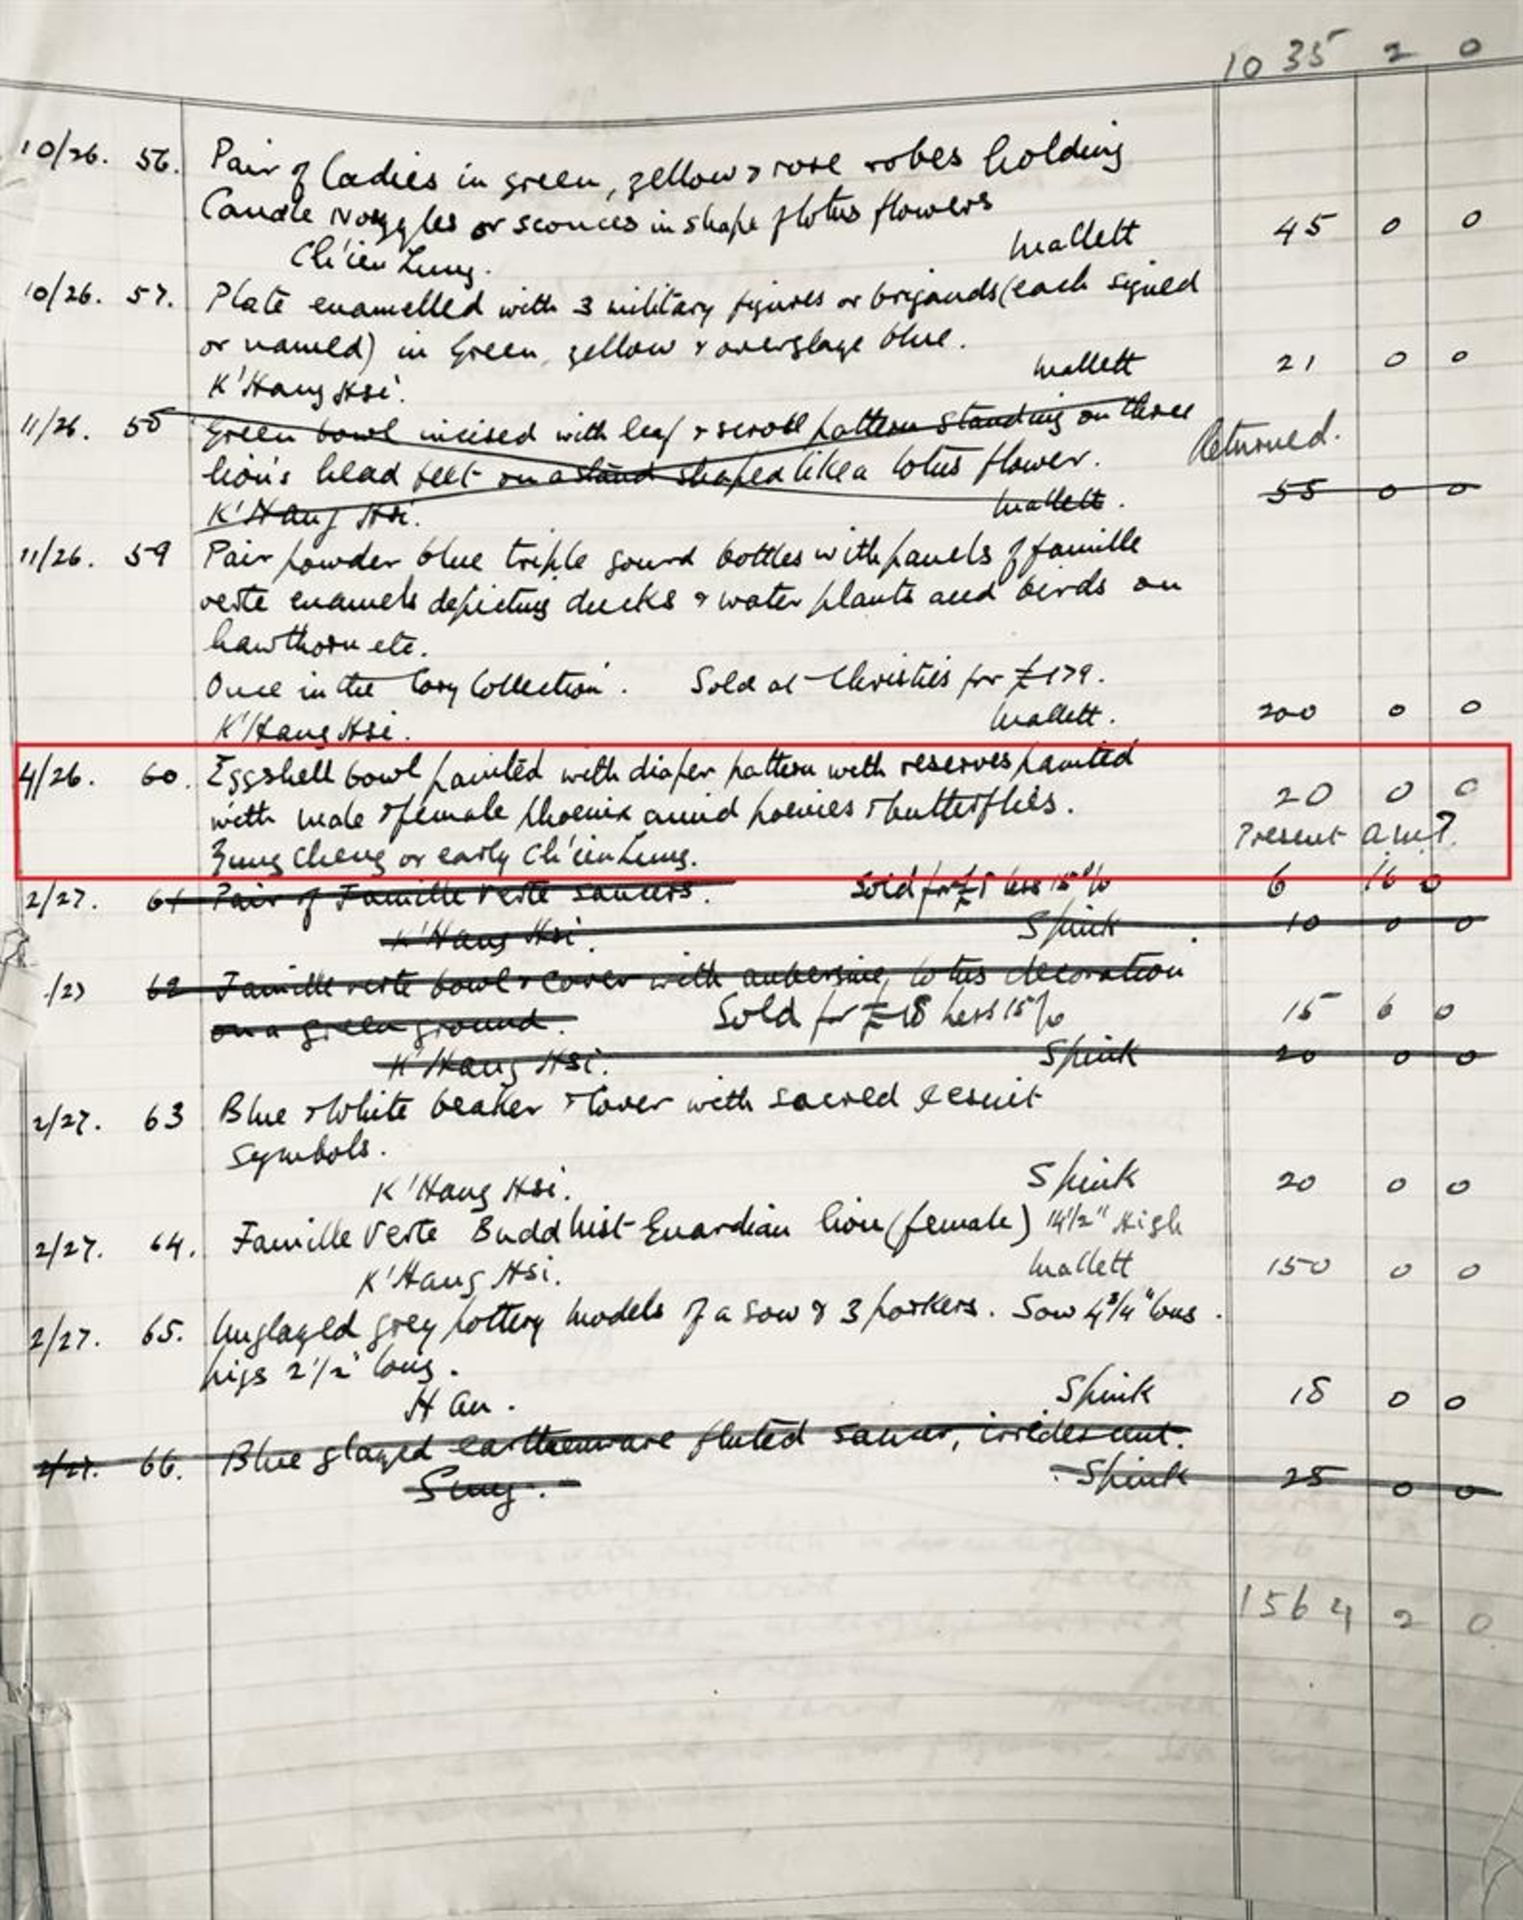 1035 2 0
10/26. 56. Pair of Ladies in green, yellow & rose robes holding
Candle Nozzles or sconces in shape of lotus flowers
Ch'ien Lung. Mallett 45 0 0
10/26. 57. Plate enamelled with 3 military figures or brigands (each signed
or named) in Green, yellow & overglaze blue.
K'Hang Hsi. Mallett 21 0 0
11/26. 58 Green bowl incised with leaf & scroll pattern standing on three
lion's head feet on a stand shaped like a lotus flower. Returned.
K'Hang Hsi. Mallett. 55 0 0
11/26. 59 Pair powder blue triple gourd bottles with panels of famille
verte enamels depicting ducks & water plants and birds on
hawthorn etc.
Once in the Cory Collection. Sold at Christies for £179.
K'Hang Hsi. Mallett. 200 0 0
4/26. 60. Eggshell bowl painted with diaper pattern with reserves painted
with male & female phoenix amid poenies & butterflies. 20 0 0
Yung Cheng or early Ch'ien Lung. Present
2/27. 61 Pair of Famille Verte saucers. Sold for £8 less 15% 6 16 0
K'Hang Hsi. Spink 10 0 0
/27 62 Famille verte bowl & cover with aubergine, lotus decoration
on a green ground. Sold for £18 less 15% 15 6 0
K'Hang Hsi. Spink 20 0 0
2/27. 63 Blue & White beaker & cover with sacred Jesuit
Symbols.
K'Hang Hsi. Spink 20 0 0
2/27. 64. Famille Verte Buddhist Guardian lion (female) 14 1/2" High
K'Hang Hsi. Mallett 150 0 0
2/27. 65. Unglazed grey pottery models of a sow & 3 porkers. Sow 4 3/4" long.
pigs 2 1/2" long.
Han. Spink 18 0 0
2/27. 66. Blue glazed earthenware fluted saucer, iridescent.
Sung. Spink 25 0 0
1564 2 0